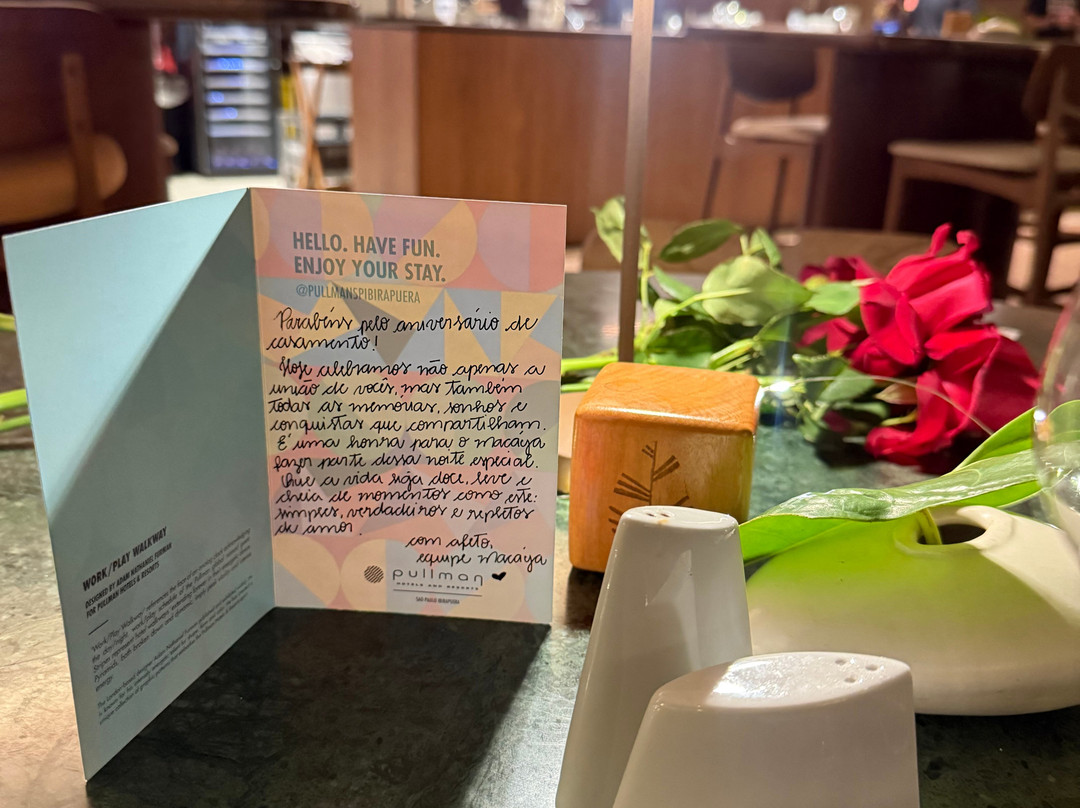 HELLO. HAVE FUN.
ENJOY YOUR STAY.
@PULLMANSPIBIRAPUERA
Parabéns pelo aniversário de
casamento!
Hoje celebramos não apenas a
união de vocês, mas também
todas as memórias, sonhos e
conquistas que compartilham.
É uma honra para o macaya
fazer parte dessa noite especial.
Que a vida siga doce, leve e
cheia de momentos como este:
simples, verdadeiros e repletos
de amor.
com afeto,
equipe macaya
pullman
HOTELS AND RESORTS
SAO PAULO IBIRAPUERA
WORK/PLAY WALKWAY
DESIGNED BY ADAM NATHANIEL FURMAN
FOR PULLMAN HOTELS & RESORTS